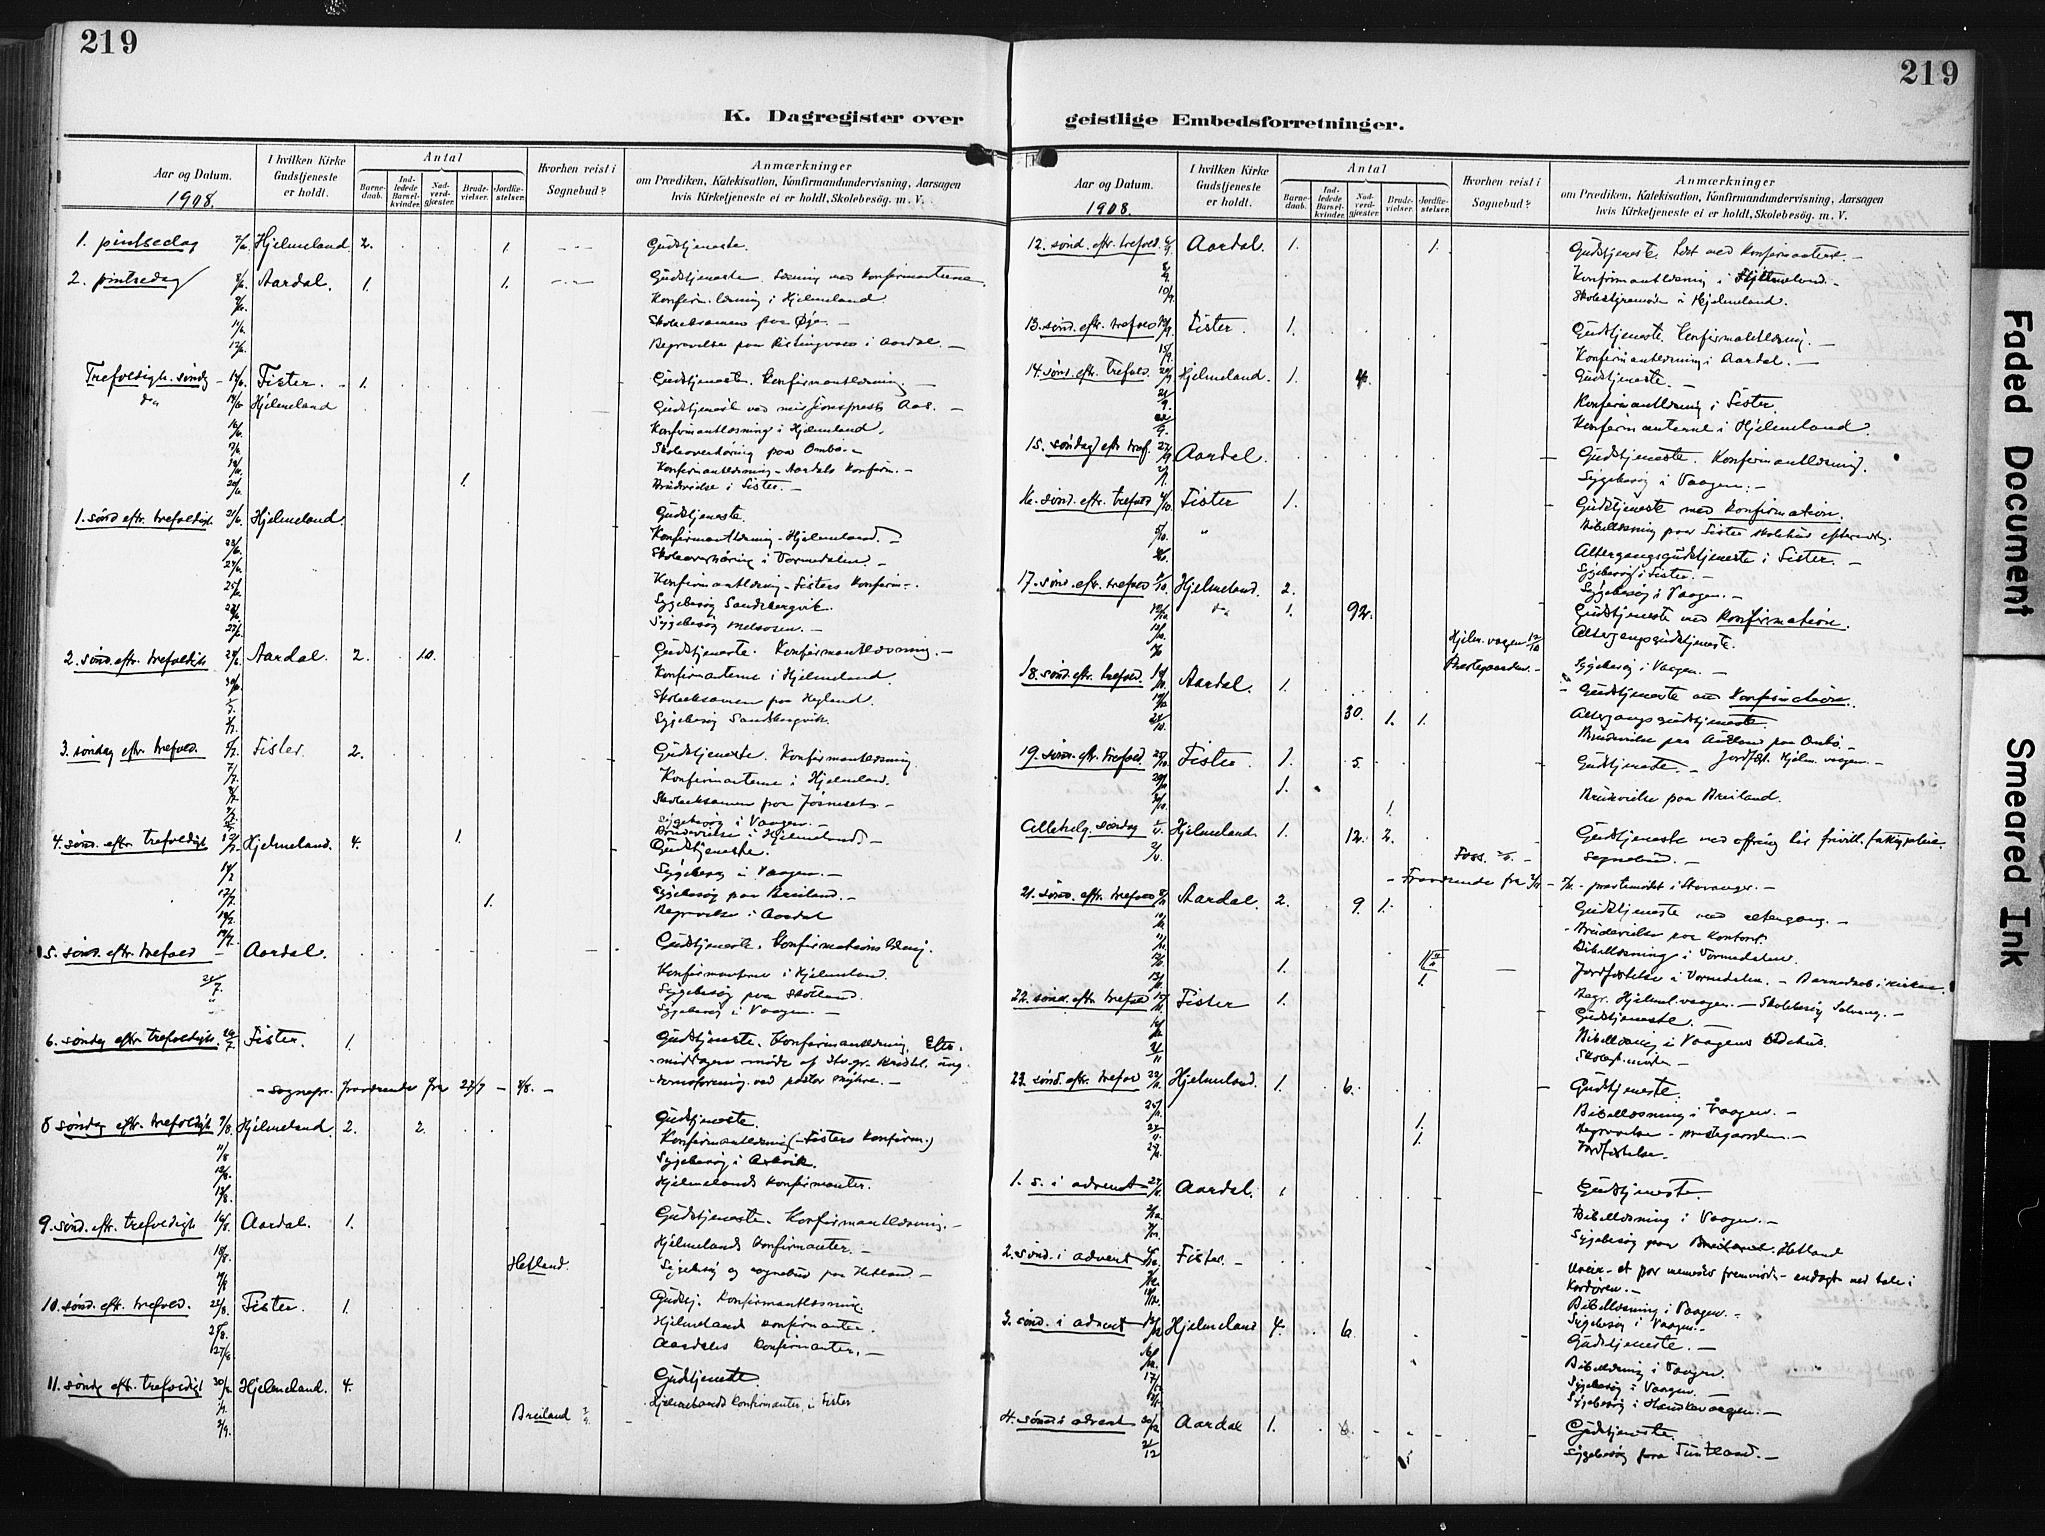 219
K. Dagregister over
Aar og Datum.
1908.
I hvilken Kirke Gudstjeneste er holdt.
Antal
Barnedaab.
Indledede Barselkvinder.
Nadverdgjæster.
Brudevielser.
Jordfæstelser.
Hvorhen reist i Sognebud?
Anmærkninger
om Prædiken, Katekisation, Konfirmandundervisning, Aarsagen
hvis Kirketjeneste ei er holdt, Skolebesøg. m. V.
1. pintsedag 7/6 Hjelmeland 2. 1. Gudstjeneste.
2. pintsedag 8/6 Aardal. 1. 1. Gudstjeneste. Læsning med Konfirmanterne
9/6. Konfirm.læsning i Hjelmeland
11/6. Skoleeksamen paa Øije. —
12/6. Begravelse paa i Aardal. —
Trefoldigh. søndg 14/6. Fister. 1. Gudstjeneste. Konfirmantlæsning —
do 14/6 Hjelmeland Gudstjeneste ved missionsprest Aas. —
16/6. Konfirmantlæsning i Hjelmeland.
Skoleoverhøring paa Ombo. —
Konfirmantlæsning - Aardals Konfirm. —
20/6. 1. Brudevielse i Fister. —
1. sønd eftr. trefoldigh. 21/6. Hjelmeland. Gudstjeneste.
Konfirmantlæsning - Hjelmeland. —
Skoleoverhøring i Vormedalen. —
Konfirmantlæsning - Fisters Konfirm —
Sygebesøg Sandsbergvik.
Sygebesøg —
2. sønd. eftr. trefoldigh 28/6. Aardal. 2. 10. Gudstjeneste. Konfirmantlæsning. —
Konfirmanterne i Hjelmeland
Skoleeksamen paa Hegland.
Sygebesøg Sandsbergvik.
3. søndag eftr. trefold. Fister. 2. Gudstjeneste. Konfirmantlæsning.
Konfirmanterne i Hjelmeland.
Skoleeksamen paa Jøsneset. —
Sygebesøg i Vaagen. —
1. Brudevielse i Hjelmeland. —
4. sønd. eftr. trefoldigh 12/7. Hjelmeland. 4. Gudstjeneste.
Sygebesøg i Vaagen. —
Sygebesøg paa Breiland. —
1. Begravelse i Aardal
5. sønd. eftr. trefold 19/7. Aardal. Gudstjeneste. Konfirmations læsning.
Konfirmanterne i Hjelmeland
Sygebesøg paa Skotland.
Sygebesøg i Vaagen. —
6. søndag eftr. trefoldigh. 26/7. Fister. 1. Gudstjeneste. Konfirmantlæsning. Efter-
middagen møde af Stv. gr. Kristel. ung-
domsforening ved pastor —
- sognepr. fraværende fra 27/7 — 4/8. —
8 søndag eftr. trefoldigh 9/8. Hjelmeland. 2. 2. Gudstjeneste.
11/8 Konfirmantlæsning (- Fisters Konfirm.)
Sygebesøg i
Hjelmelands Konfirmanter.
9. sønd. eftr. trefoldigh 16/8. Aardal. 1. Gudstjeneste. Konfirmantlæsning. —
18/8. Hjelmelands Konfirmanter. —
Hetland. Sygebesøg og sognebud paa Hetland —
10. sønd. eftr. trefold. 23/8. Fister. 1. Gudstj. Konfirmantlæsning.
Hjelmelands Konfirmanter.
27/8. Aardals Konfirmanter. —
11. sønd. eft. trefoldigt 30/8. Hjelmeland. 4. Gudstjeneste.
Breiland Hjelmelands Konfirmanter, i Fister
219
geistlige Embedsforretninger.
Aar og Datum.
1908.
I hvilken Kirke Gudstjeneste er holdt.
Antal
Barnedaab.
Indledede Barselkvinder.
Nadverdgjæster.
Brudevielser.
Jordfæstelser.
Hvorhen reist i Sognebud?
Anmærkninger
om Prædiken, Katekisation, Konfirmandundervisning, Aarsagen
hvis Kirketjeneste ei er holdt, Skolebesög. m. V.
12. sønd. eftr. trefold. 6/9. Aardal. 1. 1. Gudstjeneste. Læst med Konfirmanterne. —
8/9. Konfirmantlæsning i Hjelmeland. —
10/9. Skolestyremøde i Hjelmeland.
13. sønd. eftr. trefold 13/9. Fister. 1. Gudstjeneste. Konfirmantlæsning. —
15/9. Konfirmantlæsning i Aardal. —
14. sønd. eftr. trefold. 20/9 Hjelmeland. 1. 4. Gudstjeneste. —
21/9. Konfirmantlæsning i Fister.
22/9. Konfirmanterne i Hjelmeland.
15. søndag eftr tref. 27/9 Aardal. Gudstjeneste. Konfirmantlæsning.
Sygebesøg i Vaagen. —
16. sønd. eftr. trefold 4/10. Fister 1. Gudstjeneste med Konfirmation.
Bibellæsning paa Fister skolehus eftermdg.
5/10. " Altergangsgudstjeneste i Fister. —
Sygebesøg i Fister. —
Sygebesøg i Vaagen. —
17. sønd. eftr. trefold 11/10. Hjelmeland. 2. Gudstjeneste med Konfirmation.
12/10. do 1. 92. Altergangsgudstjeneste.
Hjelm. vaagen 12/10
Prestegaarden. — Sygebesøg i Vaagen. —
18. sønd. eftr. trefold. 18/10. Aardal. 1. Gudstjeneste med Konfirmation.
19/10 30. 1. 1. Altergangsgudstjeneste.
Brudevielse paa Ombo. —
19. sønd. eftr. trefold. 25/10. Fister. 1. 5. Gudstjeneste. — Jordfæst. Hjelm. vaagen. —
1. 1. Brudevielse paa Breiland.
Allehelg. søndag 1/11. Hjelmeland. 1. 12. 2. Gudstjeneste med ofring
Sognebud. —
— Fraværende fra — prestemødet i Stavanger. —
21. sønd. eftr. trefold 8/11 Aardal. 2. 9. 1. Gudstjeneste med altergang. —
Brudevielse paa Kontoret.
Bibellæsning i Vormedalen.
1. Jordfæstelse i Vormedalen. — Barnedaab i kirken.
1. Begr. Hjelml. vaagen. — Skolebesøg —
22. sønd. eftr. trefold 15/11. Fister 1. Gudstjeneste.
Bibellæsning i Vaagens Bedehus.
21/11
23. sønd. eftr. trefold 22/11. Hjelmeland. 1. 6. Gudstjeneste.
Bibellæsning i Vaagen. —
1. Begravelse - prestegaarden. —
1. Jordfæstelse. —
1. s. i advent 29/11. Aardal. 1. Gudstjeneste.
Bibellæsning i Vaagen. —
Sygebesøg paa Breiland. Hetland
2. sønd. i advent 6/12. Fister. — Uveir - et par mennesker fremmødt - andagt ved tale i
Kordøren. —
Bibellæsning i Vaagen. —
Sygebesøg i Vaagen. —
3. sønd. i advent 13/12 Hjelmeland 4. 6. Gudstjeneste. —
Bibellæsning i Vaagen.
Sygebesøg i Vaagen. —
Sygebesøg i Hauskevaagen. —
4. sønd. i advent 20/12 Aardal 1. Gudstjeneste.
21/12 Sygebesøg paa Tuntland. —
Faded Document
Smeared Ink